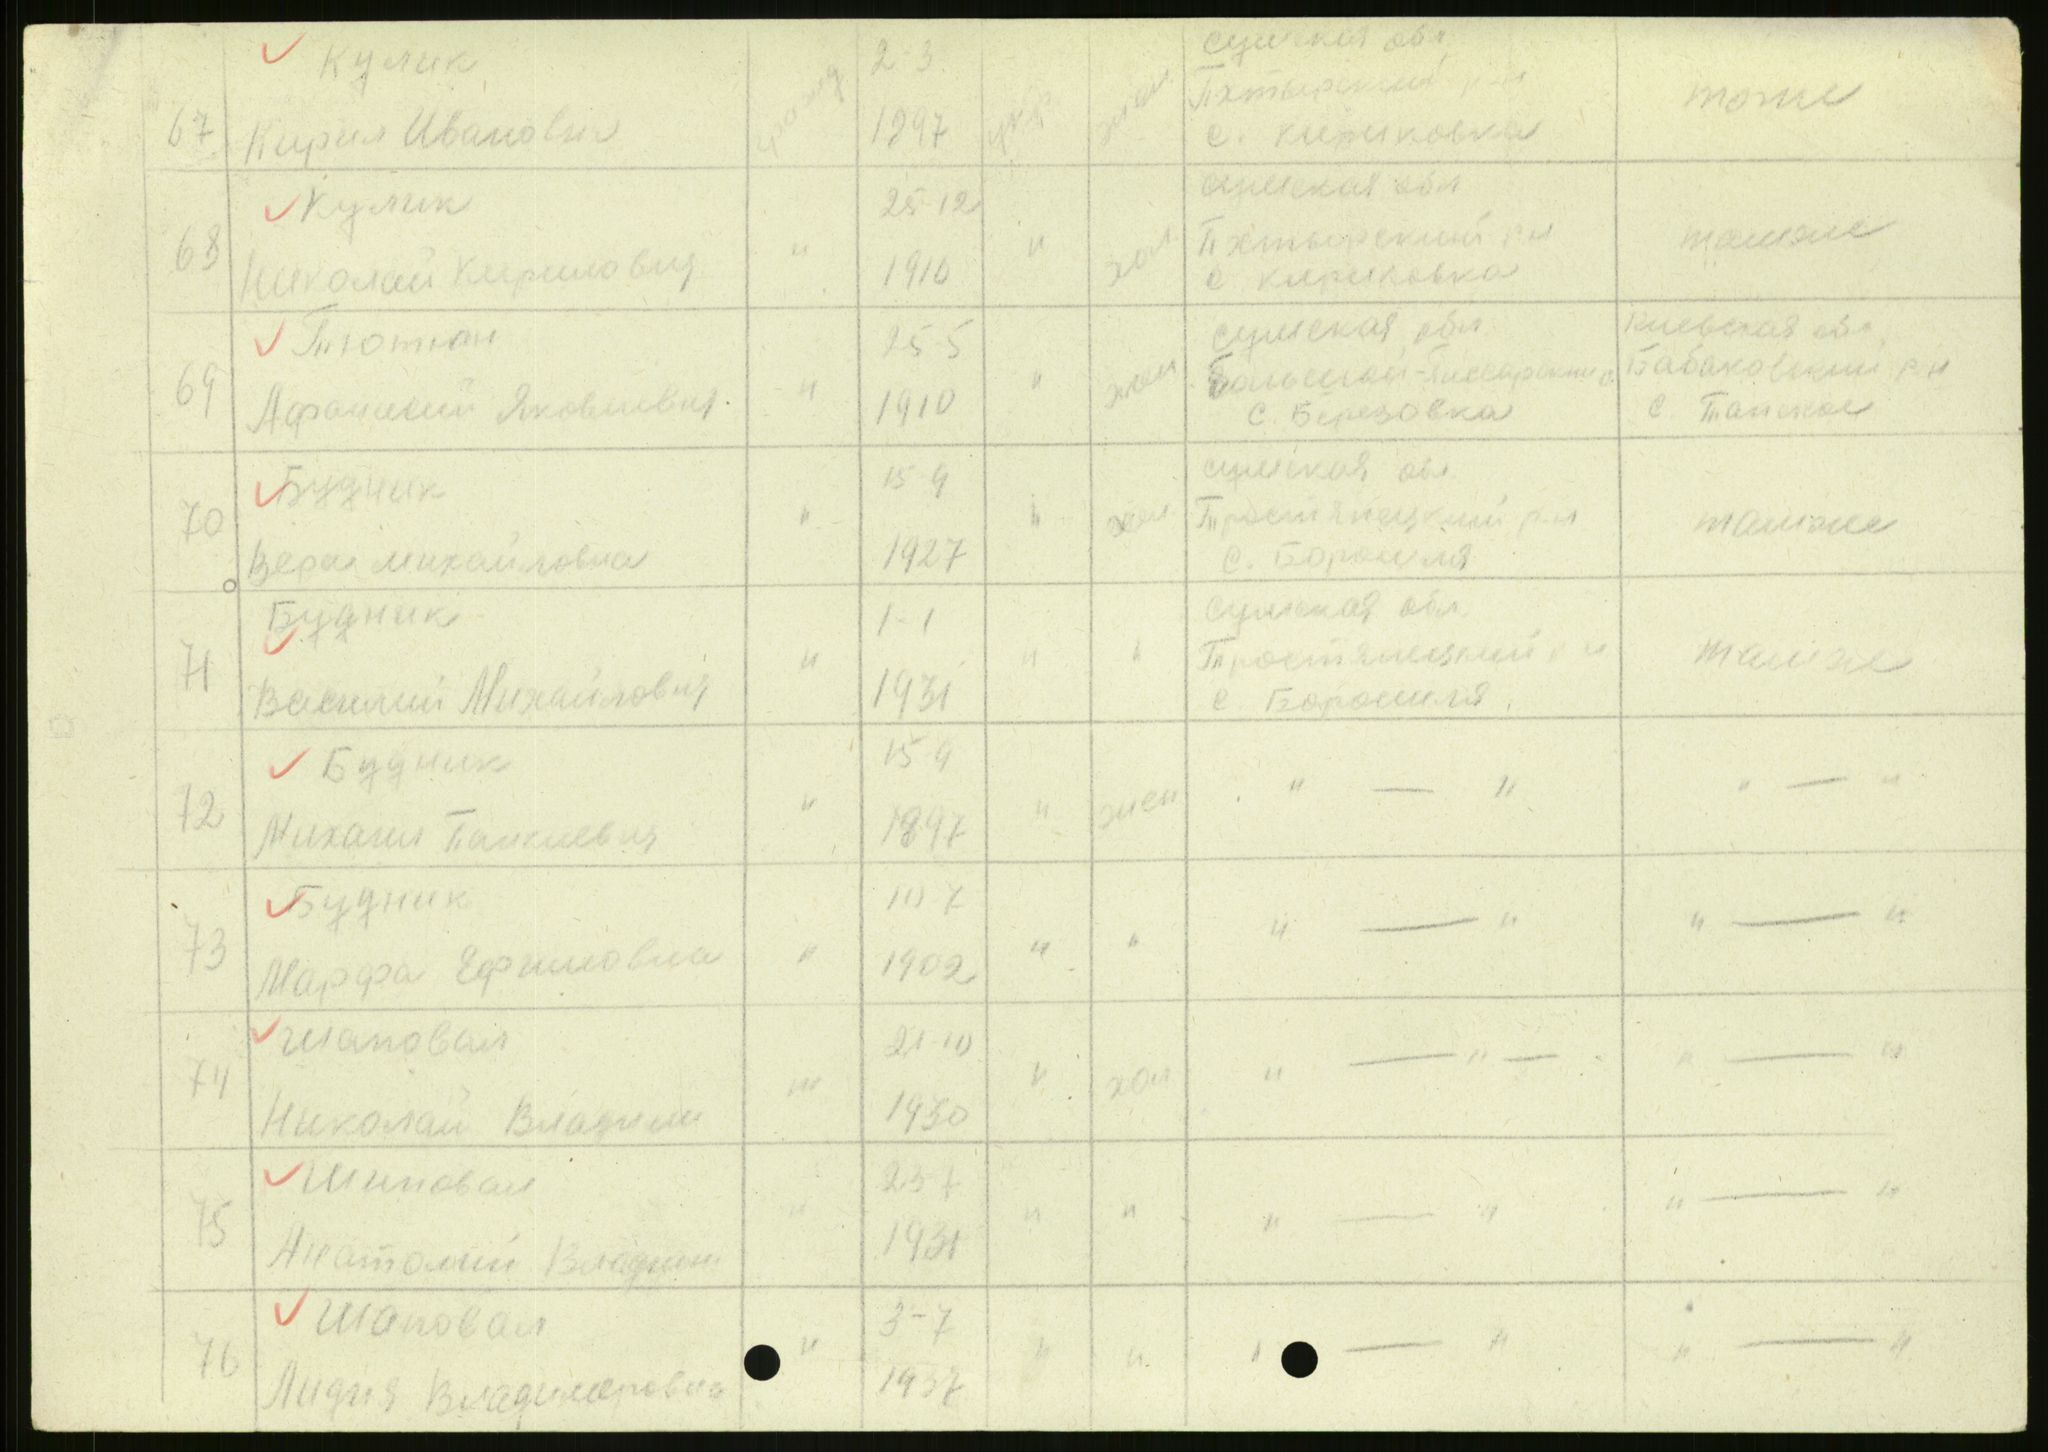 67 Кулик
Кирил Иванович
гражд
2-3
1897
укр
женат
Сумская обл
Ахтырский р-н
с. Кириковка
тоже
68 Кулик
Николай Кирилович
"
25-12
1910
"
хол
Сумская обл
Ахтырский р-н
с. Кириковка
тамже
69 Тютюн
Афанасий Яковлевич
"
25-5
1910
"
жен
Сумская обл
с. Березовка
Киевская обл
р-н
с.
70 Будник
Вера Михайловна
"
15-9
1927
"
хол
Сумская обл
Тростянецкий р-н
с. Боромля
тамже
71 Будник
Василий Михайлович
"
1-1
1931
"
"
Сумская обл
Тростянецкий р-н
с. Боромля
тамже
72 Будник
Михаил
"
15-9
1897
"
жен
" — "
" — "
73 Будник
Марфа Ефимовна
"
10-7
1902
"
"
" — "
" — "
74 Шаповал
Николай Владими
"
21-10
1930
"
хол
" — " —
" — "
75 Шаповал
Анатолий Владими
"
23-7
1931
"
"
" — "
" — "
76 Шаповал
Лидия Владимировна
"
3-7
1937
"
"
" — "
" — "